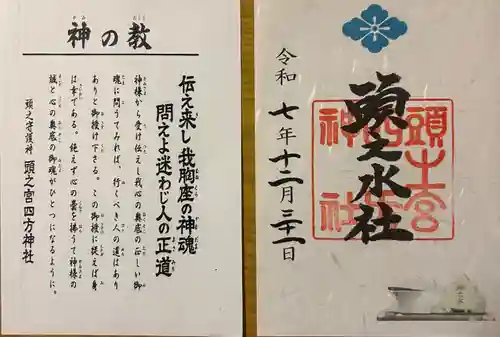 神の教
伝え来し我胸座の神魂
問えよ迷わじ人の正道
神様から受け伝えし我心の奥底の正しい御
魂に問うてみれば、行くべき人の道はあり
ありと御授け下さる。この御授に従えば身
は幸である。絶えず心の曇を拂うて神様の
誠と心の奥底の御魂がひとつになるように。
頭之守護神 頭之宮四方神社
頭之水社
令和七年十二月三十一日
頭之宮
神社